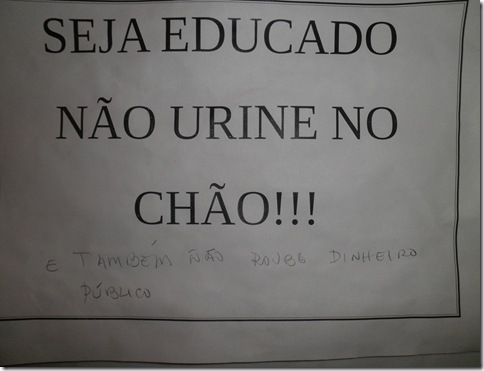 SEJA EDUCADO
NÃO URINE NO
CHÃO!!!
E TAMBÉM NÃO ROUBE DINHEIRO
PÚBLICO